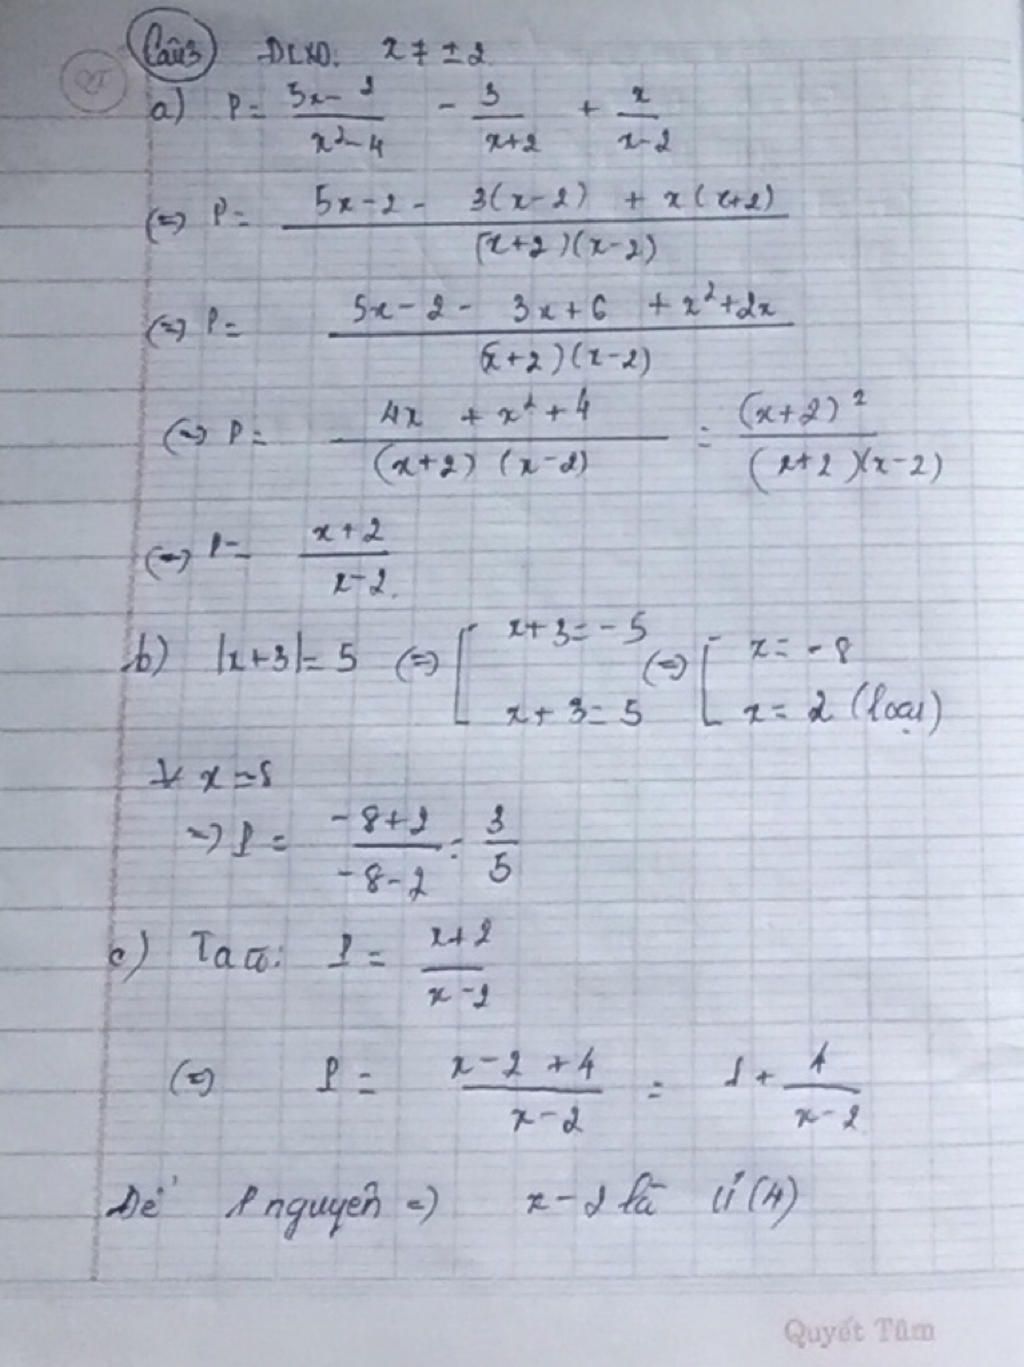 Câu 3 ĐKXĐ: x ≠ ±2
a) P = (5x - 2)/(x² - 4) - 3/(x+2) + x/(x-2)
(=) P = (5x - 2 - 3(x-2) + x(x+2))/((x+2)(x-2))
(=) P = (5x - 2 - 3x + 6 + x² + 2x)/((x+2)(x-2))
(=) P = (4x + x² + 4)/((x+2)(x-2)) = (x+2)²/((x+2)(x-2))
(=) P = (x+2)/(x-2).
b) |x+3| = 5 (=) [ x+3 = -5 ; x+3 = 5 (=) [ x = -8 ; x = 2 (loại)
x = -8
=) P = (-8+2)/(-8-2) = 3/5
c) Ta có: P = (x+2)/(x-2)
(=) P = (x - 2 + 4)/(x-2) = 1 + 4/(x-2)
Để P nguyên =) x - 2 là Ư(4)
Quyết Tâm